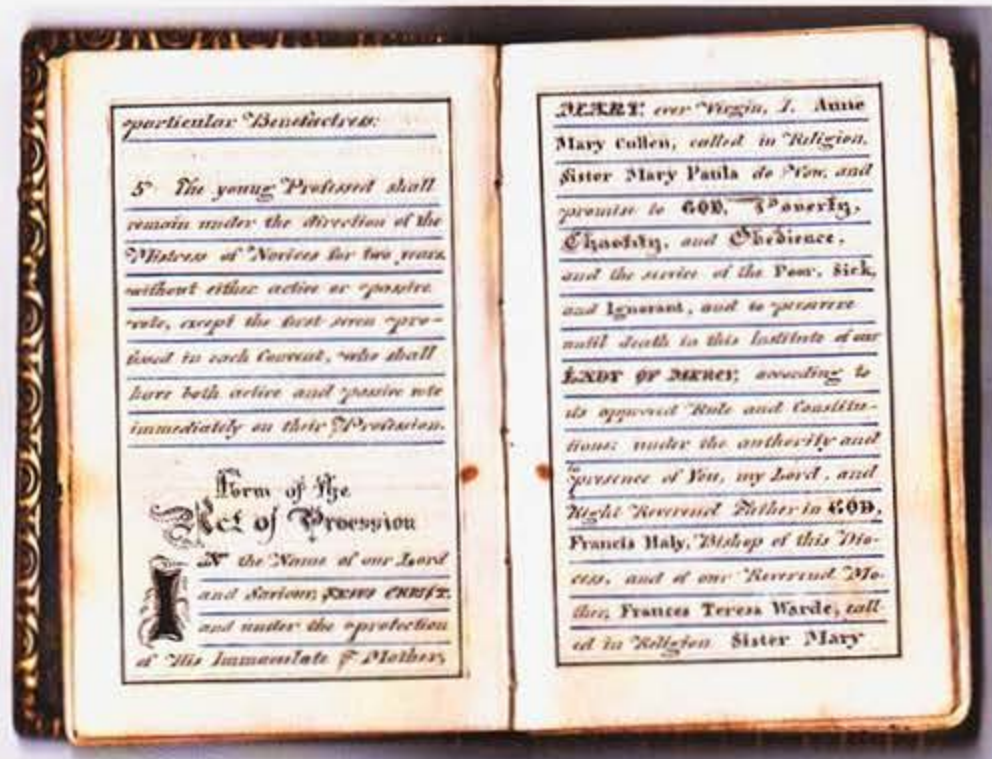 particular Benefactress.
5 The young Professed shall
remain under the direction of the
Mistress of Novices for two years,
without either active or passive
vote, except the first seven pro-
fessed in each Convent, who shall
have both active and passive vote
immediately on their Profession.
Form of the
Act of Procession
IN the Name of our Lord
and Saviour, JESUS CHRIST,
and under the protection
of His Immaculate Mother,
MARY, ever Virgin, I, Anne
Mary Cullen, called in Religion,
Sister Mary Paula do Vow, and
promise to GOD, Poverty,
Chastity, and Obedience,
and the service of the Poor, Sick,
and Ignorant, and to persevere
until death in this Institute of our
LADY OF MERCY, according to
its approved Rule and Constitu-
tions; under the authority and
presence of You, my Lord, and
Right Reverend Father in GOD,
Francis Haly, Bishop of this Dio-
cess, and of our Reverend Mo-
ther, Frances Teresa Warde, call-
ed in Religion Sister Mary